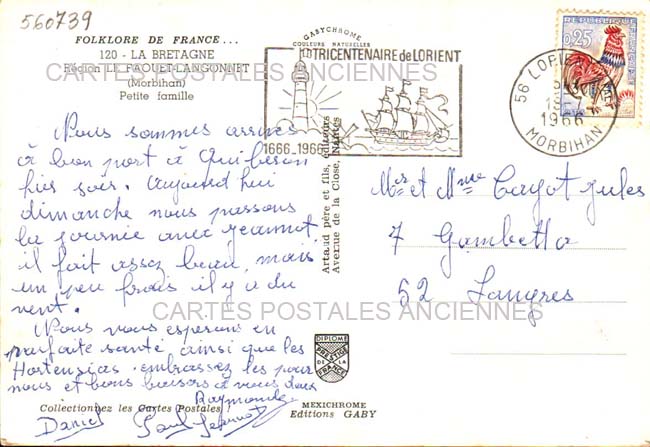 560739
FOLKLORE DE FRANCE...
120 - LA BRETAGNE
Région LE FAOUET-LANGONNET
(Morbihan)
Petite famille
GABYCHROME
COULEURS NATURELLES
TRICENTENAIRE de LORIENT
1666.1966
56 LORIENT
1966
MORBIHAN
REPUBLIQUE
0,25
CARTES POSTALES ANCIENNES
Nous sommes arrivés
à bon port à Quiberon
hier soir. Aujourd'hui
dimanche nous passons
la journée avec Jeannot,
il fait assez beau, mais
un peu frais il y a du
vent.
Nous vous espérons en
parfaite santé ainsi que les
Hortensias. embrassez les pour
nous et bons baisers à vous deux
Raymonde
Daniel Paul Jeannot
Artaud père et fils, éditeurs
Avenue de la Close, Nantes
Mr et Mme Cayot Jules
7 Gambetta
52 Langres
CARTES POSTALES ANCIENNES
DIPLOME
PRESTIGE
DE LA
FRANCE
Collectionnez les Cartes Postales
MEXICHROME
Editions GABY